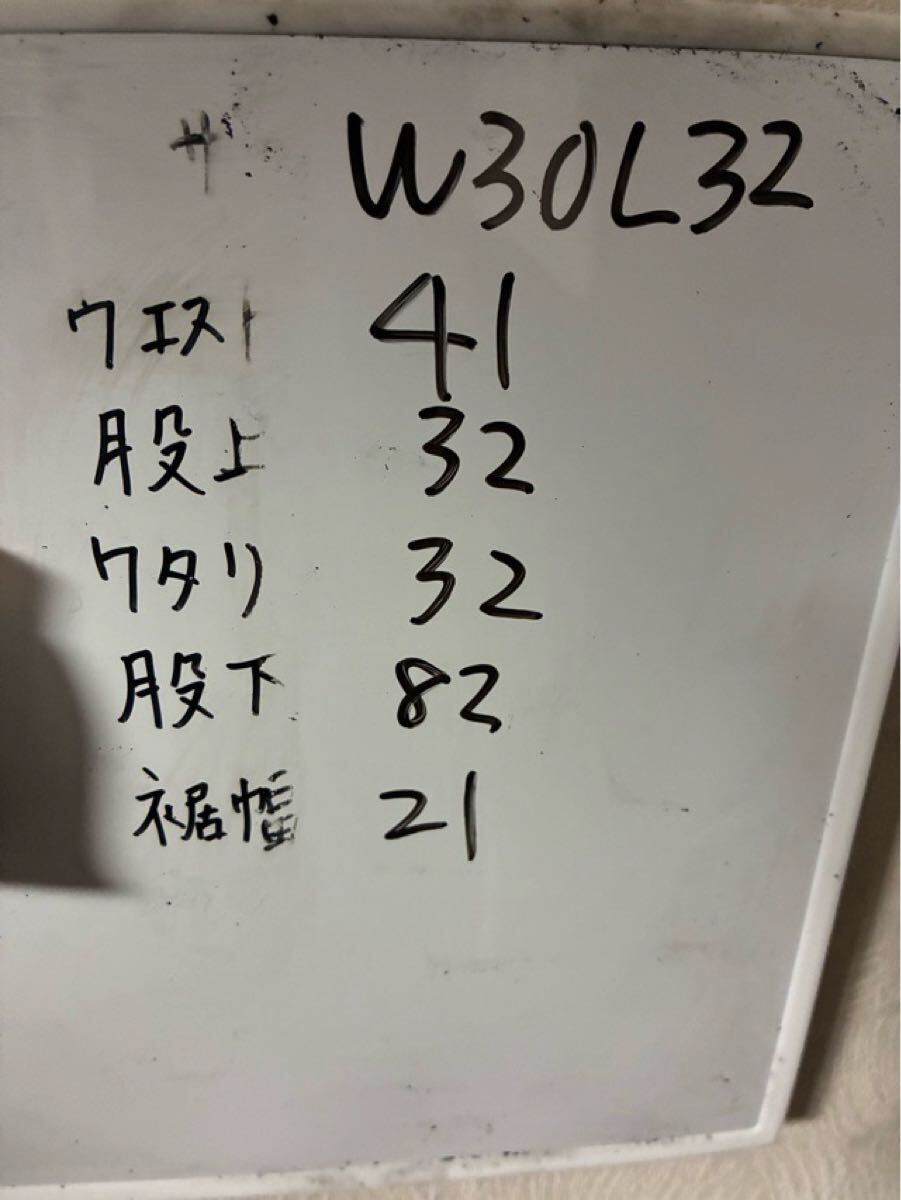 サ W30L32
ウエスト 41
股上 32
ワタリ 32
股下 82
裾幅 21